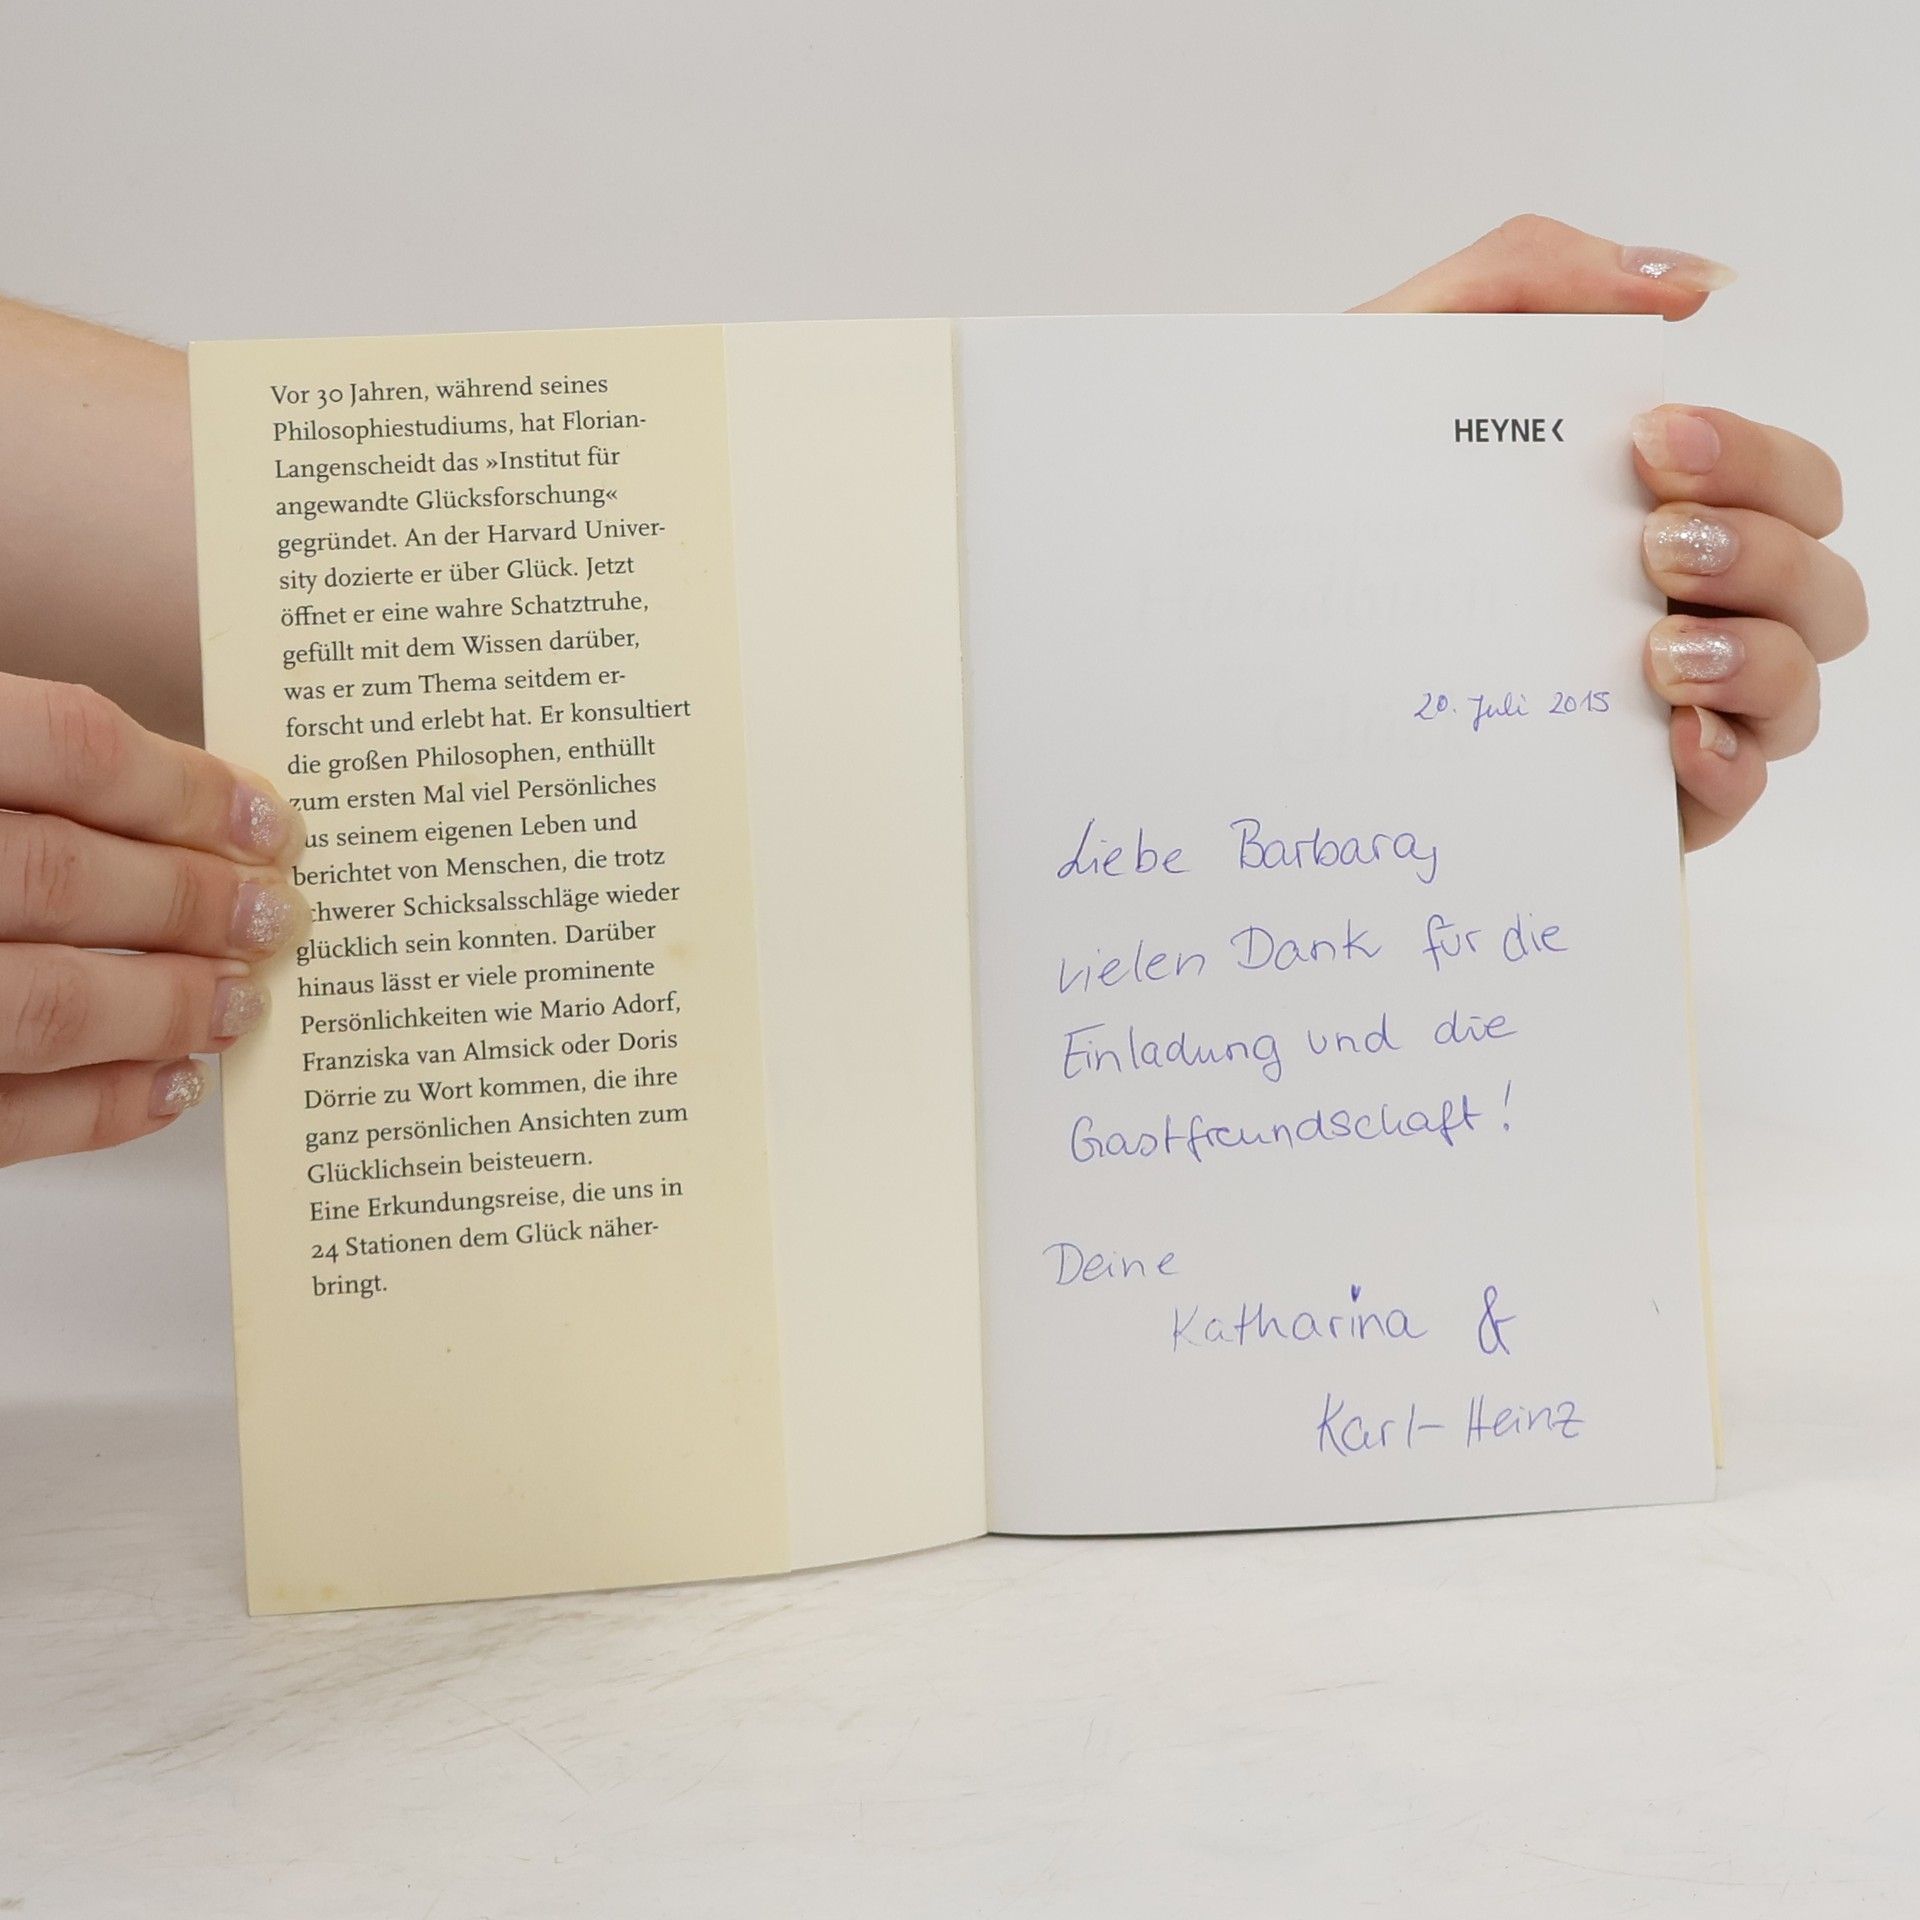 Vor 30 Jahren, während seines
Philosophiestudiums, hat Florian-
Langenscheidt das »Institut für
angewandte Glücksforschung«
gegründet. An der Harvard Univer-
sity dozierte er über Glück. Jetzt
öffnet er eine wahre Schatztruhe,
gefüllt mit dem Wissen darüber,
was er zum Thema seitdem er-
forscht und erlebt hat. Er konsultiert
die großen Philosophen, enthüllt
zum ersten Mal viel Persönliches
us seinem eigenen Leben und
berichtet von Menschen, die trotz
chwerer Schicksalsschläge wieder
glücklich sein konnten. Darüber
hinaus lässt er viele prominente
Persönlichkeiten wie Mario Adorf,
Franziska van Almsick oder Doris
Dörrie zu Wort kommen, die ihre
ganz persönlichen Ansichten zum
Glücklichsein beisteuern.
Eine Erkundungsreise, die uns in
24 Stationen dem Glück näher-
bringt.
HEYNE<
20. Juli 2015
Liebe Barbara,
vielen Dank für die
Einladung und die
Gastfreundschaft!
Deine
Katharina &
Karl-Heinz